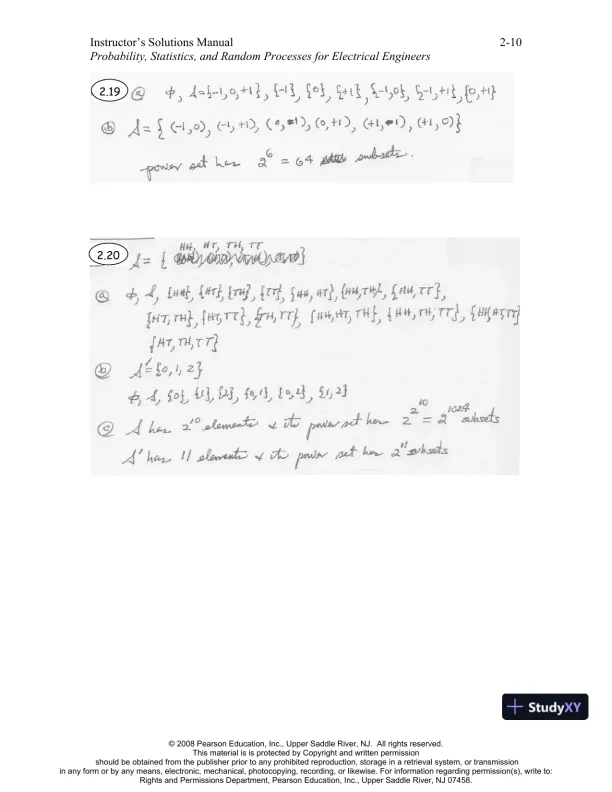 Instructor's Solutions Manual 2-10
Probability, Statistics, and Random Processes for Electrical Engineers
2.19 (a) ϕ, S={-1,0,+1}, {-1}, {0}, {+1}, {-1,0}, {-1,+1}, {0,+1}
(b) S = { (-1,0), (-1,+1), (0,-1), (0,+1), (+1,-1), (+1,0)}
power set has 2^6 = 64 subsets.
HH, HT, TH, TT
2.20 S = { }
(a) ϕ, S, {HH}, {HT}, {TH}, {TT}, {HH,HT}, {HH,TH}, {HH,TT},
{HT,TH}, {HT,TT}, {TH,TT}, {HH,HT,TH}, {HH,TH,TT}, {HH,HT,TT}
{HT,TH,TT}
(b) S'={0,1,2}
ϕ, S, {0}, {1}, {2}, {0,1}, {0,2}, {1,2}
(c) S has 2^10 elements & its power set has 2^2^10 = 2^1024 subsets
S' has 11 elements & its power set has 2^11 subsets
StudyXY
© 2008 Pearson Education, Inc., Upper Saddle River, NJ. All rights reserved.
This material is is protected by Copyright and written permission
should be obtained from the publisher prior to any prohibited reproduction, storage in a retrieval system, or transmission
in any form or by any means, electronic, mechanical, photocopying, recording, or likewise. For information regarding permission(s), write to:
Rights and Permissions Department, Pearson Education, Inc., Upper Saddle River, NJ 07458.